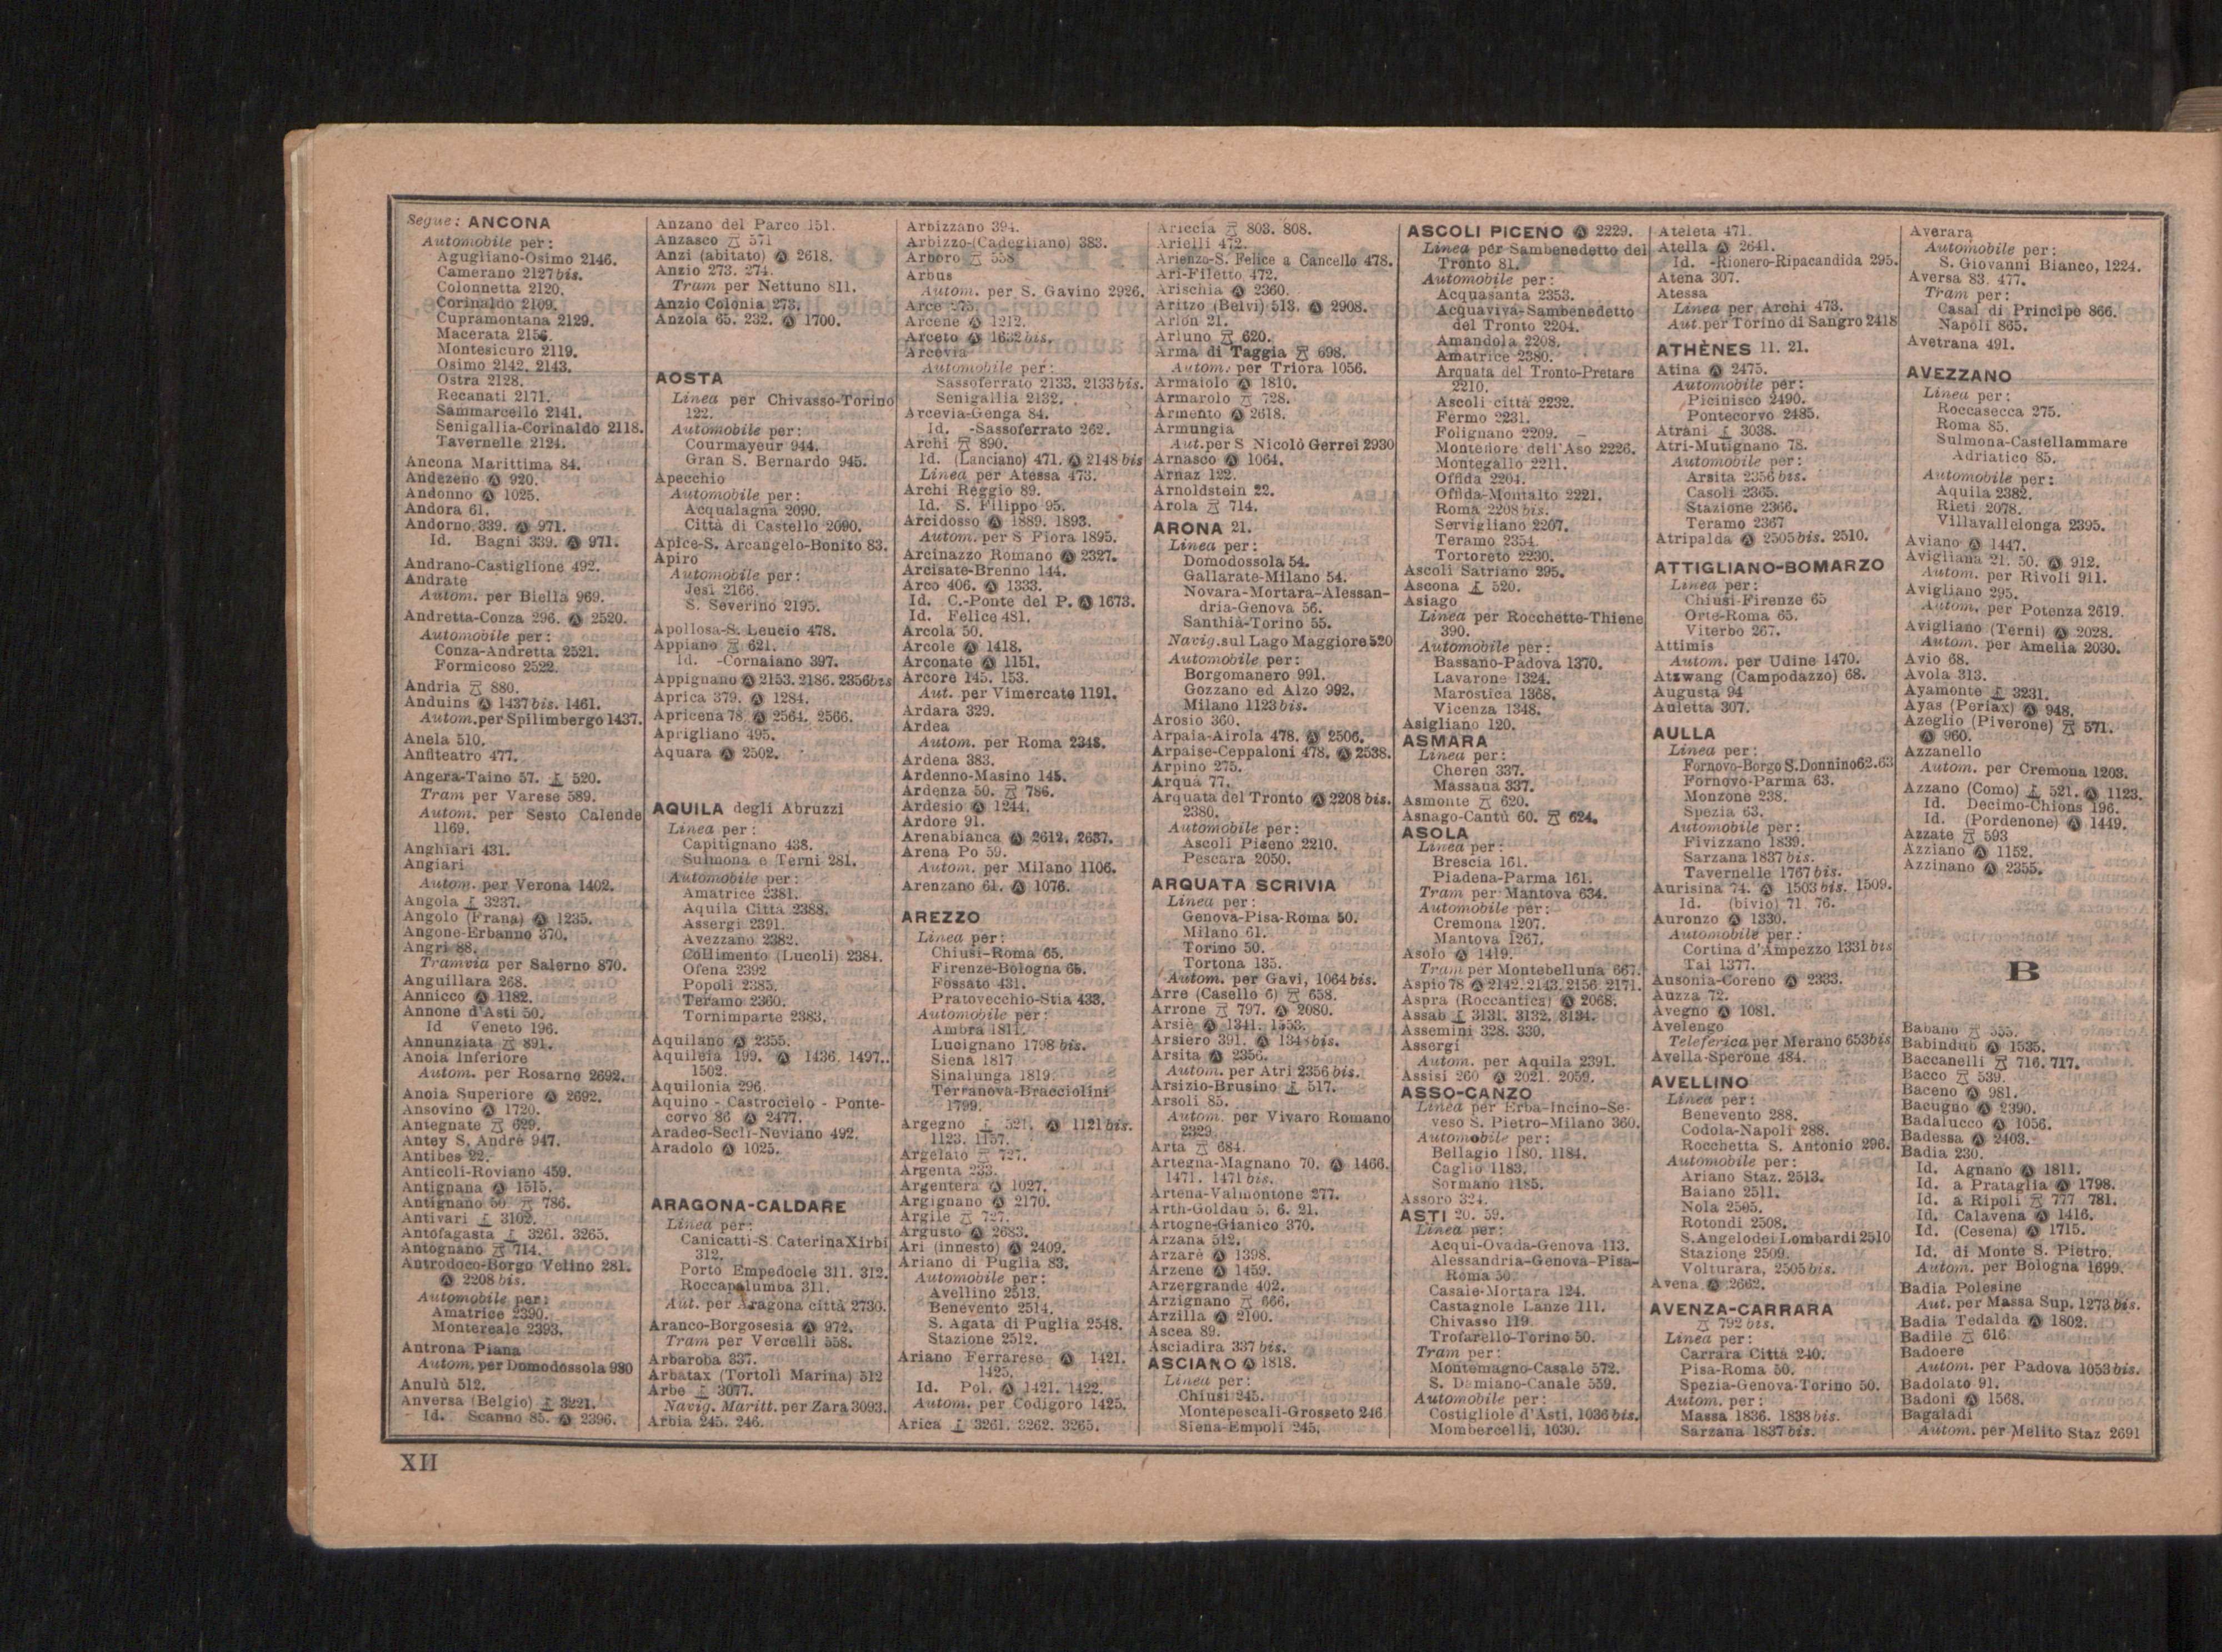 Segue: ANCONA
Automobile per:
Agugliano-Osimo 2146.
Camerano 2127 bis.
Colonnetta 2120.
Corinaldo 2109.
Cupramontana 2129.
Macerata 2156.
Montesicuro 2119.
Osimo 2142. 2143.
Ostra 2128.
Recanati 2171.
Sammarcello 2141.
Senigallia-Corinaldo 2118.
Tavernelle 2124.
Ancona Marittima 84.
Andezeno Ⓐ 920.
Andonno Ⓐ 1025.
Andora 61.
Andorno 339. Ⓐ 971.
Id. Bagni 339. Ⓐ 971.
Andrano-Castiglione 492.
Andrate
Autom. per Biella 969.
Andretta-Conza 296. Ⓐ 2520.
Automobile per:
Conza-Andretta 2521.
Formicoso 2522.
Andria 880.
Anduins Ⓐ 1437 bis. 1461.
Autom. per Spilimbergo 1437.
Anela 510.
Anfiteatro 477.
Angera-Taino 57. 520.
Tram per Varese 589.
Autom. per Sesto Calende
1169.
Anghiari 431.
Angiari
Autom. per Verona 1402.
Angola 3237.
Angolo (Frana) Ⓐ 1235.
Angone-Erbanno 370.
Angri 88.
Tramvia per Salerno 870.
Anguillara 268.
Annicco Ⓐ 1182.
Annone d'Asti 50.
Id Veneto 196.
Annunziata 891.
Anoia Inferiore
Autom. per Rosarno 2692.
Anoia Superiore Ⓐ 2692.
Ansovino Ⓐ 1720.
Antegnate 629.
Antey S. André 947.
Antibes 22.
Anticoli-Roviano 459.
Antignana Ⓐ 1515.
Antignano 50. 786.
Antivari 3102.
Antofagasta 3261. 3265.
Antognano 714.
Antrodoco-Borgo Velino 281.
Ⓐ 2208 bis.
Automobile per:
Amatrice 2390.
Montereale 2393.
Antrona Piana
Autom. per Domodossola 980
Anulù 512.
Anversa (Belgio) 3221.
Id. Scanno 85. Ⓐ 2396.
Anzano del Parco 151.
Anzasco 571
Anzi (abitato) Ⓐ 2618.
Anzio 273. 274.
Tram per Nettuno 811.
Anzio Colonia 273.
Anzola 65. 232. Ⓐ 1700.
AOSTA
Linea per Chivasso-Torino
122.
Automobile per:
Courmayeur 944.
Gran S. Bernardo 945.
Apecchio
Automobile per:
Acqualagna 2090.
Città di Castello 2090.
Apice-S. Arcangelo-Bonito 83.
Apiro
Automobile per:
Jesi 2166.
S. Severino 2195.
Apollosa-S. Leucio 478.
Appiano 621.
Id. -Cornaiano 397.
Appignano Ⓐ 2153. 2186. 2356 bis
Aprica 379. Ⓐ 1284.
Apricena 78. Ⓐ 2564. 2566.
Aprigliano 495.
Aquara Ⓐ 2502.
AQUILA degli Abruzzi
Linea per:
Capitignano 438.
Sulmona e Terni 281.
Automobile per:
Amatrice 2381.
Aquila Città 2388.
Assergi 2391.
Avezzano 2382.
Collimento (Lucoli) 2384.
Ofena 2392
Popoli 2385.
Teramo 2360.
Tornimparte 2383.
Aquilano Ⓐ 2355.
Aquileia 199. Ⓐ 1436. 1497.
1502.
Aquilonia 296.
Aquino - Castrocielo - Ponte-
corvo 86 Ⓐ 2477.
Aradeo-Seclì-Neviano 492.
Aradolo Ⓐ 1025.
ARAGONA-CALDARE
Linea per:
Canicattì-S. Caterina Xirbi
312.
Porto Empedocle 311. 312.
Roccapalumba 311.
Aut. per Aragona città 2730.
Aranco-Borgosesia Ⓐ 972.
Tram per Vercelli 558.
Arbaroba 337.
Arbatax (Tortolì Marina) 512
Arbe 3077.
Navig. Maritt. per Zara 3093.
Arbia 245. 246.
Arbizzano 394.
Arbizzo-(Cadegliano) 383.
Arboro 558
Arbus
Autom. per S. Gavino 2926.
Arce 275.
Arcene Ⓐ 1212.
Arceto Ⓐ 1632 bis.
Arcevia
Automobile per:
Sassoferrato 2133. 2133 bis.
Senigallia 2132.
Arcevia-Genga 84.
Id. -Sassoferrato 262.
Archi 890.
Id. (Lanciano) 471. Ⓐ 2148 bis
Linea per Atessa 473.
Archi Reggio 89.
Id. S. Filippo 95.
Arcidosso Ⓐ 1889. 1893.
Autom. per S Fiora 1895.
Arcinazzo Romano Ⓐ 2327.
Arcisate-Brenno 144.
Arco 406. Ⓐ 1333.
Id. C.-Ponte del P. Ⓐ 1673.
Id. Felice 481.
Arcola 50.
Arcole Ⓐ 1418.
Arconate Ⓐ 1151.
Arcore 145. 153.
Aut. per Vimercate 1191.
Ardara 329.
Ardea
Autom. per Roma 2348.
Ardena 383.
Ardenno-Masino 145.
Ardenza 50. 786.
Ardesio Ⓐ 1244.
Ardore 91.
Arenabianca Ⓐ 2612. 2637.
Arena Po 59.
Autom. per Milano 1106.
Arenzano 61. Ⓐ 1076.
AREZZO
Linea per:
Chiusi-Roma 65.
Firenze-Bologna 65.
Fossato 431.
Pratovecchio-Stia 433.
Automobile per:
Ambra 1811.
Lucignano 1798 bis.
Siena 1817
Sinalunga 1819.
Terranova-Bracciolini
1799.
Argegno 521. Ⓐ 1121 bis.
1123. 1157.
Argelato 727.
Argenta 233.
Argentera Ⓐ 1027.
Argignano Ⓐ 2170.
Argile 727.
Argusto Ⓐ 2683.
Ari (innesto) Ⓐ 2409.
Ariano di Puglia 83.
Automobile per:
Avellino 2513.
Benevento 2514.
S. Agata di Puglia 2548.
Stazione 2512.
Ariano Ferrarese Ⓐ 1421.
1425.
Id. Pol. Ⓐ 1421. 1422.
Autom. per Codigoro 1425.
Arica 3261. 3262. 3265.
Ariccia 803. 808.
Arielli 472.
Arienzo-S. Felice a Cancello 478.
Ari-Filetto 472.
Arischia Ⓐ 2360.
Aritzo (Belvì) 513. Ⓐ 2908.
Arlon 21.
Arluno 620.
Arma di Taggia 698.
Autom. per Triora 1056.
Armaiolo Ⓐ 1810.
Armarolo 728.
Armento Ⓐ 2618.
Armungia
Aut. per S Nicolò Gerrei 2930
Arnasco Ⓐ 1064.
Arnaz 122.
Arnoldstein 22.
Arola 714.
ARONA 21.
Linea per:
Domodossola 54.
Gallarate-Milano 54.
Novara-Mortara-Alessan-
dria-Genova 56.
Santhià-Torino 55.
Navig. sul Lago Maggiore 520
Automobile per:
Borgomanero 991.
Gozzano ed Alzo 992.
Milano 1123 bis.
Arosio 360.
Arpaia-Airola 478. Ⓐ 2506.
Arpaise-Ceppaloni 478. Ⓐ 2538.
Arpino 275.
Arquà 77.
Arquata del Tronto Ⓐ 2208 bis.
2380.
Automobile per:
Ascoli Piceno 2210.
Pescara 2050.
ARQUATA SCRIVIA
Linea per:
Genova-Pisa-Roma 50.
Milano 61.
Torino 50.
Tortona 135.
Autom. per Gavi, 1064 bis.
Arre (Casello 6) 658.
Arrone 797. Ⓐ 2080.
Arsiè Ⓐ 1341. 1553.
Arsiero 391. Ⓐ 1343 bis.
Arsita Ⓐ 2356.
Autom. per Atri 2356 bis.
Arsizio-Brusino 517.
Arsoli 85.
Autom. per Vivaro Romano
2329.
Arta 684.
Artegna-Magnano 70. Ⓐ 1466.
1471. 1471 bis.
Artena-Valmontone 277.
Arth-Goldau 5. 6. 21.
Artogne-Gianico 370.
Arzana 512.
Arzarè Ⓐ 1398.
Arzene Ⓐ 1459.
Arzergrande 402.
Arzignano 666.
Arzilla Ⓐ 2100.
Ascea 89.
Asciadira 337 bis.
ASCIANO Ⓐ 1818.
Linea per:
Chiusi 245.
Montepescali-Grosseto 246
Siena-Empoli 245.
ASCOLI PICENO Ⓐ 2229.
Linea per Sambenedetto del
Tronto 81.
Automobile per:
Acquasanta 2353.
Acquaviva-Sambenedetto
del Tronto 2204.
Amandola 2208.
Amatrice 2380.
Arquata del Tronto-Pretare
2210.
Ascoli città 2232.
Fermo 2231.
Folignano 2209.
Montefiore dell'Aso 2226.
Montegallo 2211.
Offida 2204.
Offida-Montalto 2221.
Roma 2208 bis.
Servigliano 2207.
Teramo 2354.
Tortoreto 2230.
Ascoli Satriano 295.
Ascona 520.
Asiago
Linea per Rocchette-Thiene
390.
Automobile per:
Bassano-Padova 1370.
Lavarone 1324.
Marostica 1368.
Vicenza 1348.
Asigliano 120.
ASMARA
Linea per:
Cheren 337.
Massaua 337.
Asmonte 620.
Asnago-Cantù 60. 624.
ASOLA
Linea per:
Brescia 161.
Piadena-Parma 161.
Tram per Mantova 634.
Automobile per:
Cremona 1207.
Mantova 1267.
Asolo Ⓐ 1419.
Tram per Montebelluna 667.
Aspio 78 Ⓐ 2142. 2143. 2156. 2171.
Aspra (Roccantica) Ⓐ 2068.
Assab 3131. 3132. 3134.
Assemini 328. 330.
Assergi
Autom. per Aquila 2391.
Assisi 260 Ⓐ 2021. 2059.
ASSO-CANZO
Linea per Erba-Incino-Se-
veso S. Pietro-Milano 360.
Automobile per:
Bellagio 1180. 1184.
Caglio 1183.
Sormano 1185.
Assoro 324.
ASTI 20. 59.
Linea per:
Acqui-Ovada-Genova 113.
Alessandria-Genova-Pisa-
Roma 50
Casale-Mortara 124.
Castagnole Lanze 111.
Chivasso 119.
Trofarello-Torino 50.
Tram per:
Montemagno-Casale 572.
S. Damiano-Canale 559.
Automobile per:
Costigliole d'Asti, 1036 bis.
Mombercelli, 1030.
Ateleta 471.
Atella Ⓐ 2641.
Id. -Rionero-Ripacandida 295.
Atena 307.
Atessa
Linea per Archi 473.
Aut. per Torino di Sangro 2418
ATHÈNES 11. 21.
Atina Ⓐ 2475.
Automobile per:
Picinisco 2490.
Pontecorvo 2485.
Atrani 3038.
Atri-Mutignano 78.
Automobile per:
Arsita 2356 bis.
Casoli 2365.
Stazione 2366.
Teramo 2367
Atripalda Ⓐ 2505 bis. 2510.
ATTIGLIANO-BOMARZO
Linea per:
Chiusi-Firenze 65
Orte-Roma 65.
Viterbo 267.
Attimis
Autom. per Udine 1470.
Atzwang (Campodazzo) 68.
Augusta 94
Auletta 307.
AULLA
Linea per:
Fornovo-Borgo S. Donnino 62. 63
Fornovo-Parma 63.
Monzone 238.
Spezia 63.
Automobile per:
Fivizzano 1839.
Sarzana 1837 bis.
Tavernelle 1767 bis.
Aurisina 74. Ⓐ 1503 bis. 1509.
Id. (bivio) 71. 76.
Auronzo Ⓐ 1330.
Automobile per:
Cortina d'Ampezzo 1331 bis
Tai 1377.
Ausonia-Coreno Ⓐ 2333.
Auzza 72.
Avegno Ⓐ 1081.
Avelengo
Teleferica per Merano 653 bis
Avella-Sperone 484.
AVELLINO
Linea per:
Benevento 288.
Codola-Napoli 288.
Rocchetta S. Antonio 296.
Automobile per:
Ariano Staz. 2513.
Baiano 2511.
Nola 2505.
Rotondi 2508.
S. Angelo dei Lombardi 2510
Stazione 2509.
Volturara, 2505 bis.
Avena Ⓐ 2662.
AVENZA-CARRARA
792 bis.
Linea per:
Carrara Città 240.
Pisa-Roma 50.
Spezia-Genova-Torino 50.
Autom. per:
Massa 1836. 1838 bis.
Sarzana 1837 bis.
Averara
Automobile per:
S. Giovanni Bianco, 1224.
Aversa 83. 477.
Tram per:
Casal di Principe 866.
Napoli 865.
Avetrana 491.
AVEZZANO
Linea per:
Roccasecca 275.
Roma 85.
Sulmona-Castellammare
Adriatico 85.
Automobile per:
Aquila 2382.
Rieti 2078.
Villavallelonga 2395.
Aviano Ⓐ 1447.
Avigliana 21. 50. Ⓐ 912.
Autom. per Rivoli 911.
Avigliano 295.
Autom. per Potenza 2619.
Avigliano (Terni) Ⓐ 2028.
Autom. per Amelia 2030.
Avio 68.
Avola 313.
Ayamonte 3231.
Ayas (Periax) Ⓐ 948.
Azeglio (Piverone) 571.
Ⓐ 960.
Azzanello
Autom. per Cremona 1203.
Azzano (Como) 521. Ⓐ 1123.
Id. Decimo-Chions 196.
Id. (Pordenone) Ⓐ 1449.
Azzate 593
Azziano Ⓐ 1152.
Azzinano Ⓐ 2355.
B
Babano 555.
Babindub Ⓐ 1535.
Baccanelli 716. 717.
Bacco 539.
Baceno Ⓐ 981.
Bacugno Ⓐ 2390.
Badalucco Ⓐ 1056.
Badessa Ⓐ 2403.
Badia 230.
Id. Agnano Ⓐ 1811.
Id. a Prataglia Ⓐ 1798.
Id. a Ripoli 777 781.
Id. Calavena Ⓐ 1416.
Id. (Cesena) Ⓐ 1715.
Id. di Monte S. Pietro.
Autom. per Bologna 1699.
Badia Polesine
Aut. per Massa Sup. 1273 bis.
Badia Tedalda Ⓐ 1802.
Badile 616.
Badoere
Autom. per Padova 1053 bis.
Badolato 91.
Badoni Ⓐ 1568.
Bagaladi
Autom. per Melito Staz 2691
XII